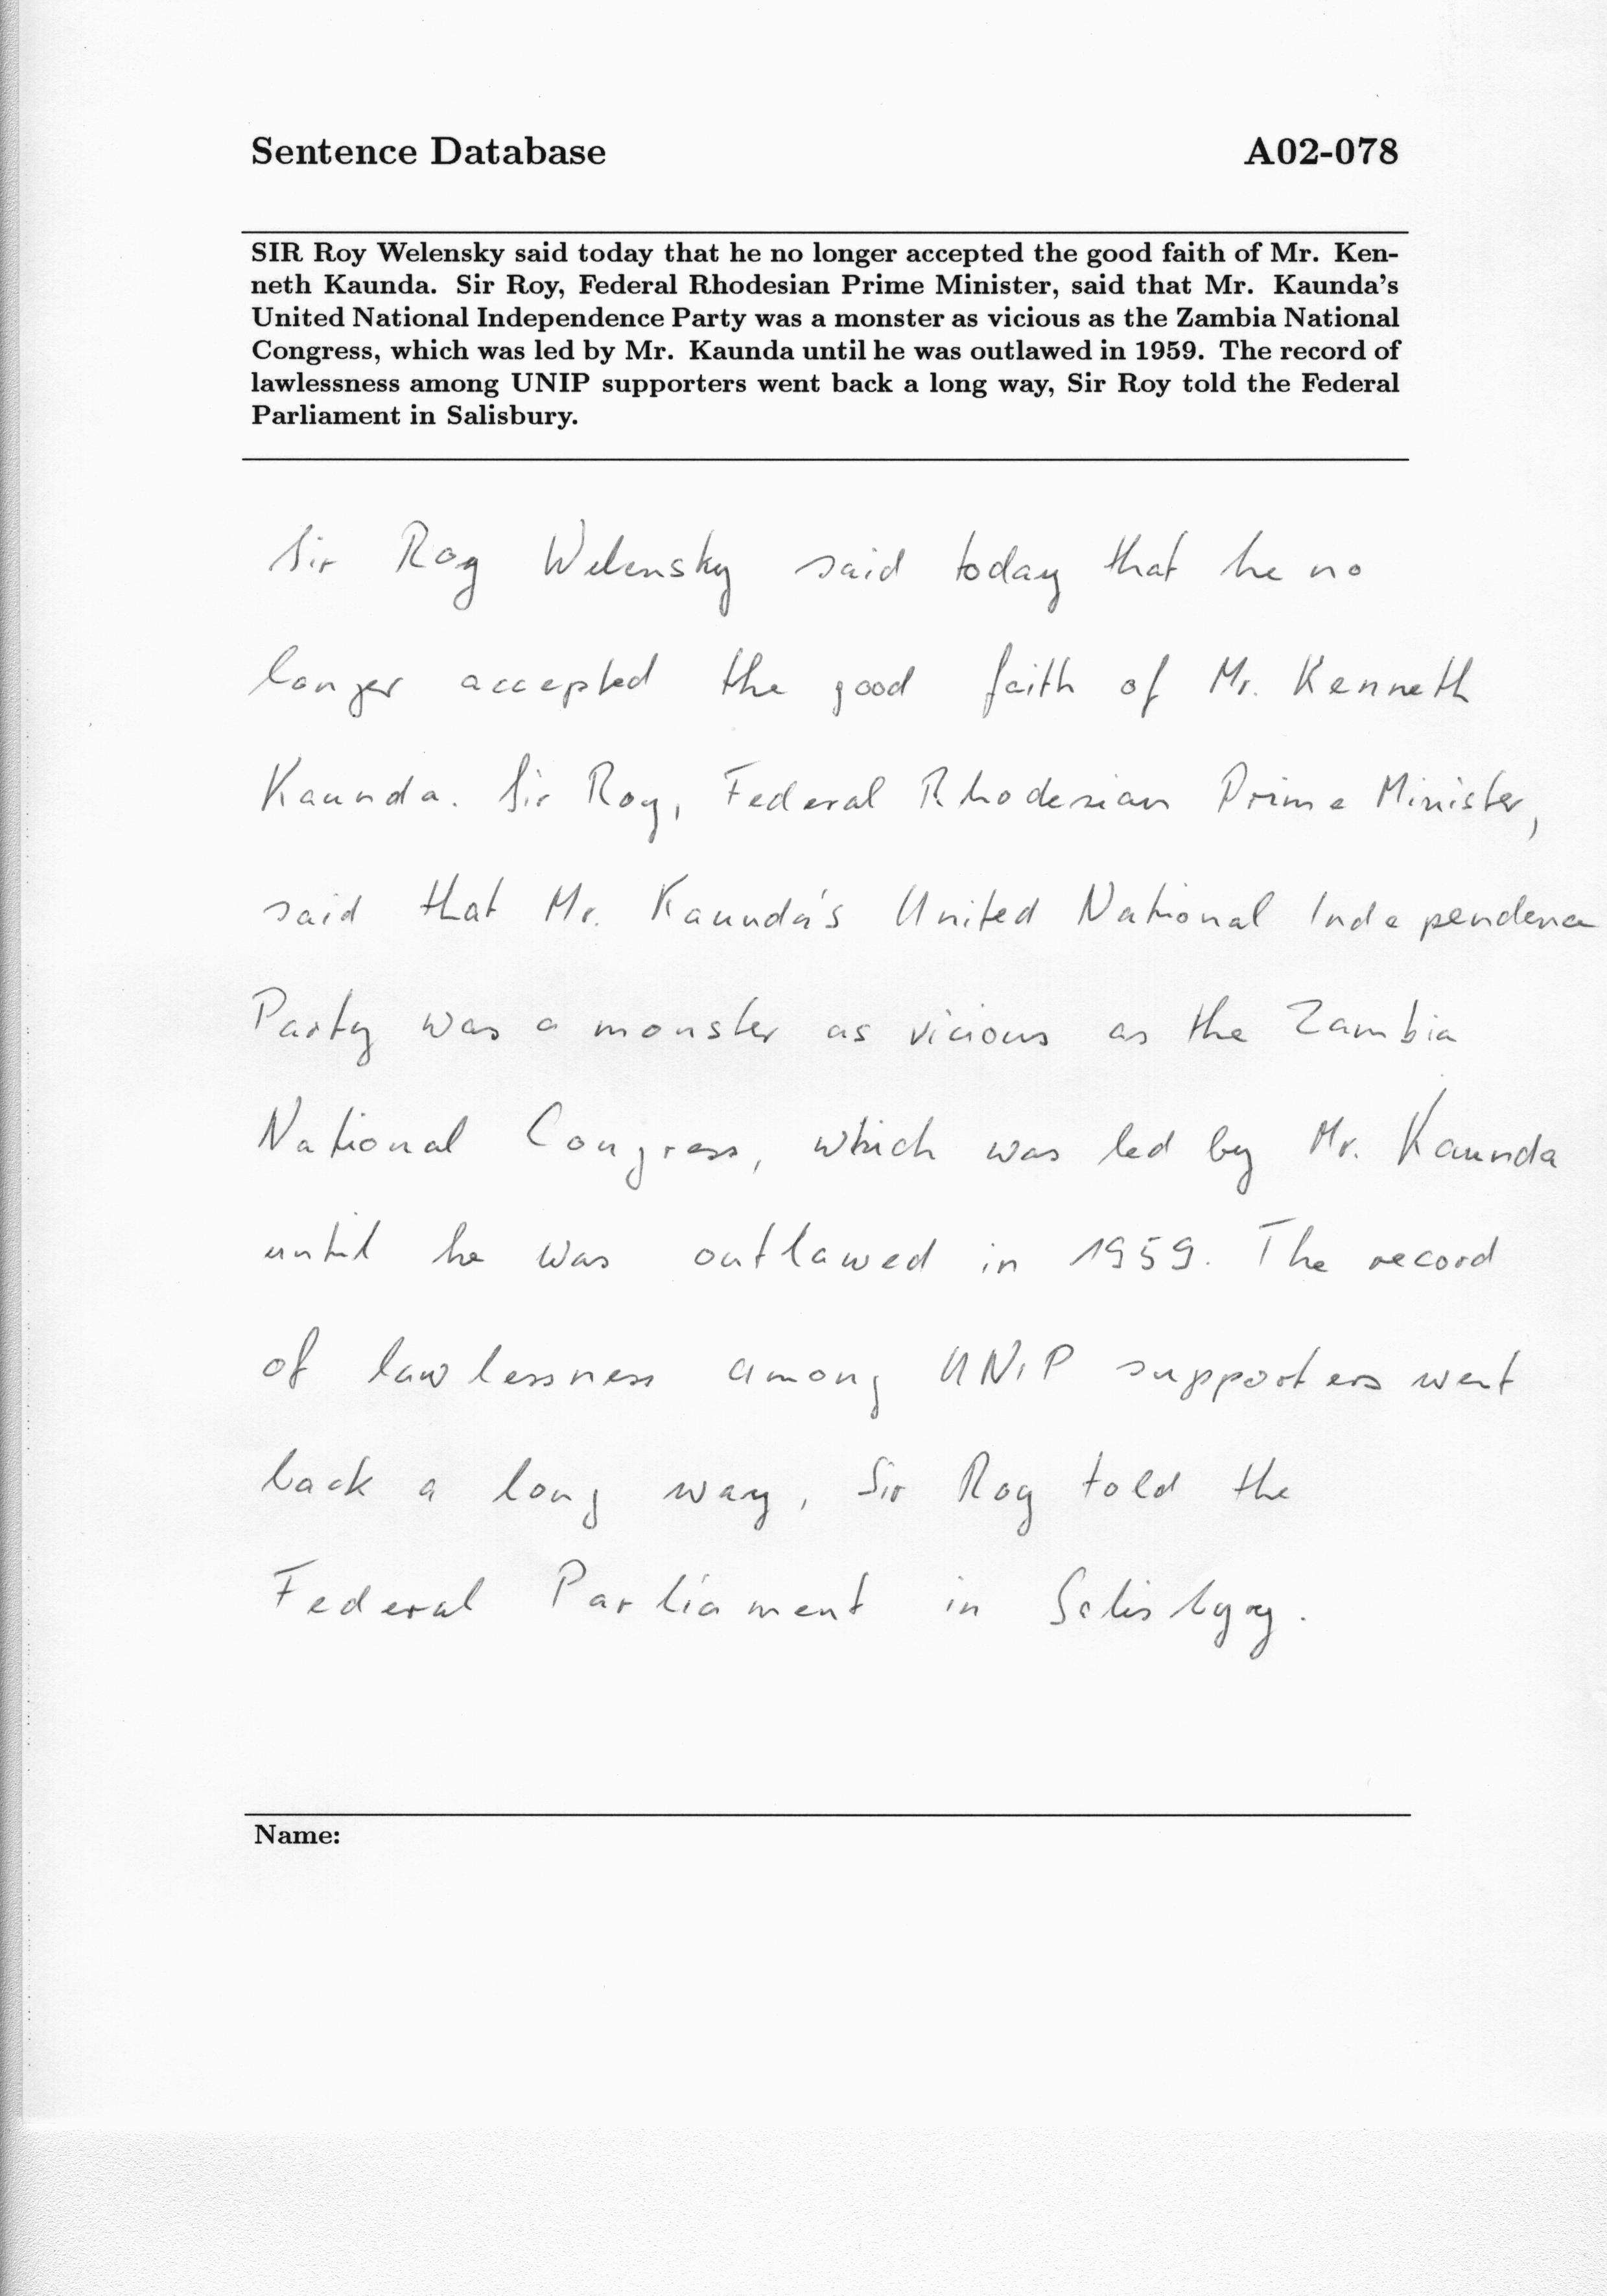 Sentence Database A02-078
SIR Roy Welensky said today that he no longer accepted the good faith of Mr. Ken-
neth Kaunda. Sir Roy, Federal Rhodesian Prime Minister, said that Mr. Kaunda's
United National Independence Party was a monster as vicious as the Zambia National
Congress, which was led by Mr. Kaunda until he was outlawed in 1959. The record of
lawlessness among UNIP supporters went back a long way, Sir Roy told the Federal
Parliament in Salisbury.
Sir Roy Welensky said today that he no
longer accepted the good faith of Mr. Kenneth
Kaunda. Sir Roy, Federal Rhodesian Prime Minister,
said that Mr. Kaunda's United National Independence
Party was a monster as vicious as the Zambia
National Congress, which was led by Mr. Kaunda
until he was outlawed in 1959. The record
of lawlessness among UNIP supporters went
back a long way, Sir Roy told the
Federal Parliament in Salisbyry.
Name: